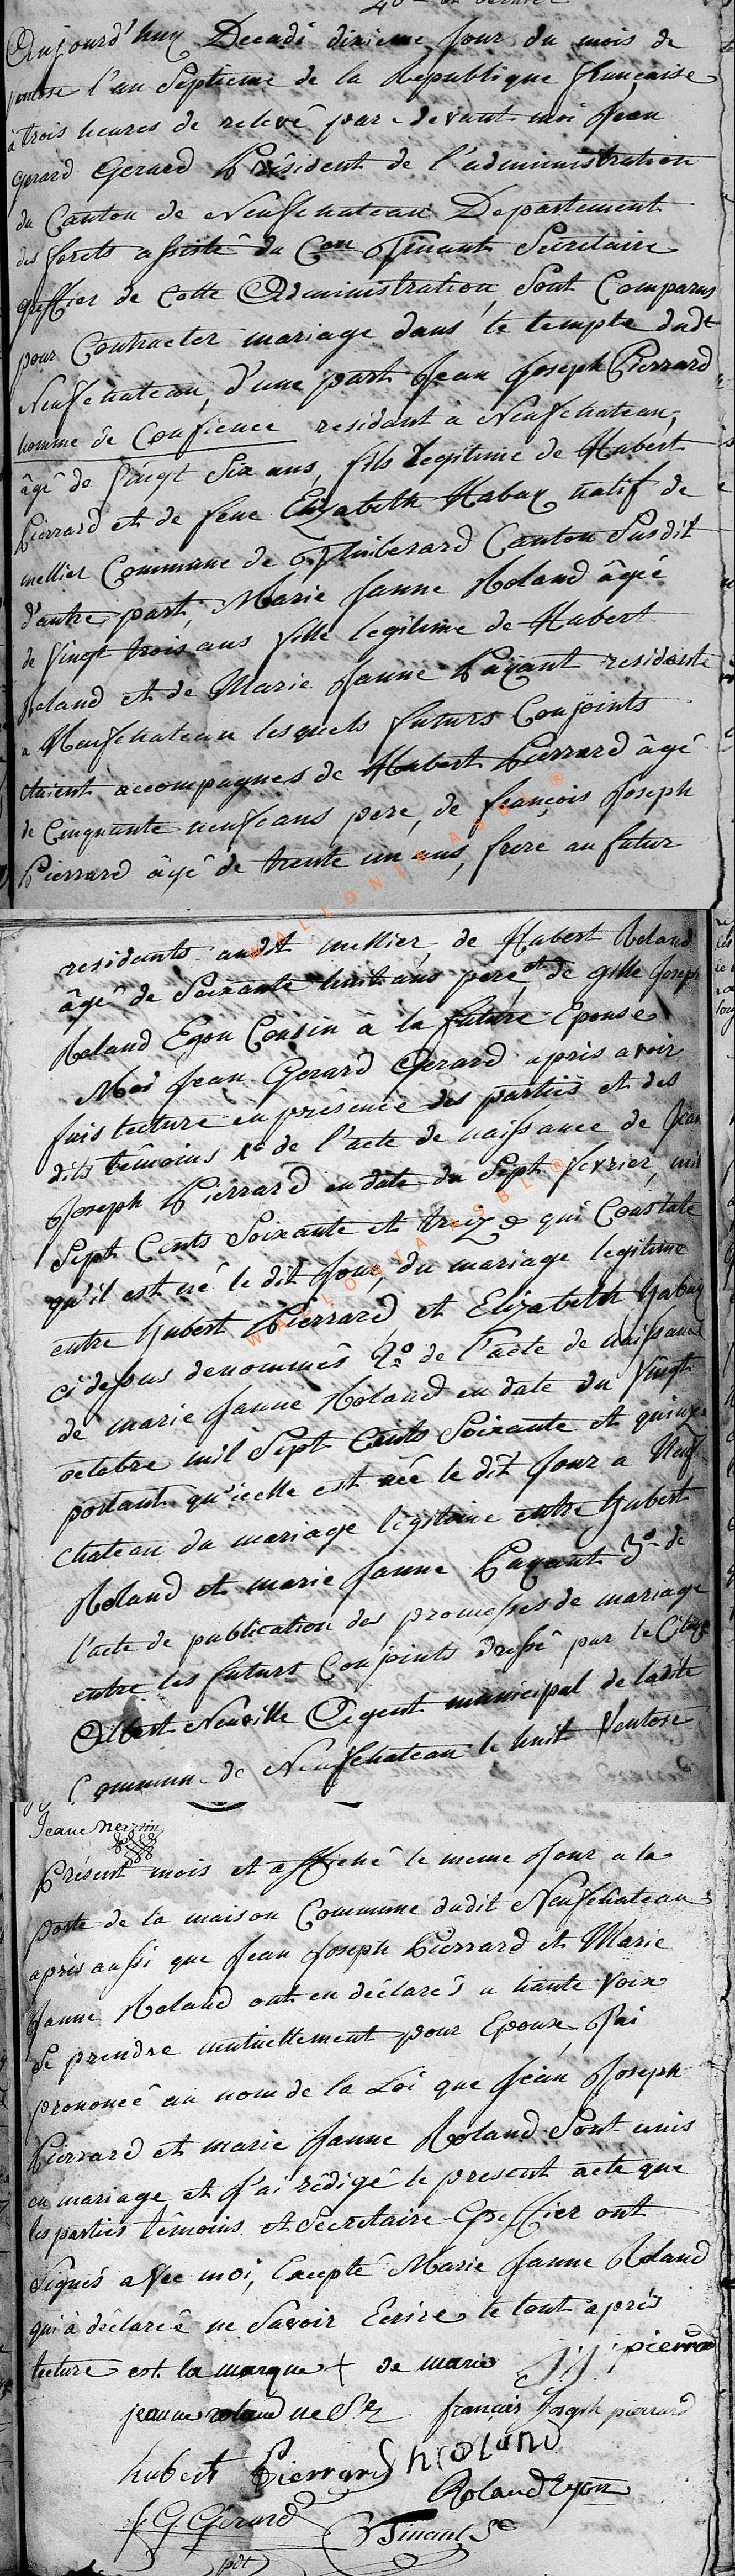 Aujourd'huy Decadi dixieme Jour du mois de
ventose l'an Septieme de la Republique française
à trois heures de relevé par devant moi Jean
Gerard Gerard Président de l'administration
du Canton de Neufchateau Departement
des forets assisté du Con Tinant Secretaire
greffier de Cette Administration, Sont Comparus
pour Contracter mariage dans le temple dudt
Neufchateau, d'une part Jean Joseph Pierrard
homme de Confience residant à Neufchateau,
âgé de Vingt Six ans, fils legitime de Hubert
Pierrard et de feue Elizabeth Habay natif de
mellier Commune de Thibesard Canton Susdit
d'autre part, Marie Janne Roland âgéé
de Vingt trois ans fille legitime de Hubert
Roland et de Marie Janne Payant residante
a Neufchateau lesquels futurs Conjoints
étaient accompagnés de Hubert Pierrard âgé
de Cinquante neuf ans pere, de françois Joseph
Pierrard âgé de trente un ans, frere au futur
residants audt mellier, de Hubert Roland
âgé de Soixante huit ans pere et de gille Joseph
Roland Egon Cousin à la future Epouse
Moi Jean Gerard Gerard après avoir
fais lecture en présence des parties et des
dits témoins 1o de l'acte de naissance de Jean
Joseph Pierrard en date du Sept fevrier, mil
Sept Cents Soixante et treize qui Constate
qu'il est né le dit Jour, du mariage legitime
entre hubert Pierrard et Elizabeth habay
ci dessus denommés 2o de l'acte de naissance
de marie Janne Roland en date du Vingt
octobre mil Sept Cents Soixante et quinze
portant qu'icelle est née le dit Jour a Neuf
chateau du mariage legitime entre hubert
Roland et marie Janne Payant 3o de
l'acte de publication des promesses de mariage
entre les futurs Conjoints dressé par le Citoyen
Albert Neuville Agent municipal de ladite
Commune de Neufchateau le huit Ventose
Jeane
Présent mois et affiché le meme Jour a la
porte de la maison Commune dudit Neufchateau
après aussi que Jean Joseph Pierrard et Marie
Janne Roland ont eu déclarés a haute Voix
Se prendre mutuellement pour Epoux, J'ai
prononcé au nom de la Loi que Jean Joseph
Pierrard et marie Janne Roland Sont unis
en mariage et J'ai rédigé le present acte que
les parties témoins et Secretaire Greffier ont
Signés avec moi, Excepté Marie Janne Roland
qui à déclaréé ne Savoir Ecrire le tout après
lecture est la marque + de marie JJ pierrard
jeanne roland francois Joseph pierrard
hubert Pierrard h roland
Roland Egon
J. G. Gerard Tinant Sre
pdt
WALLONIA ASBL ®
WALLONIA ASBL ®